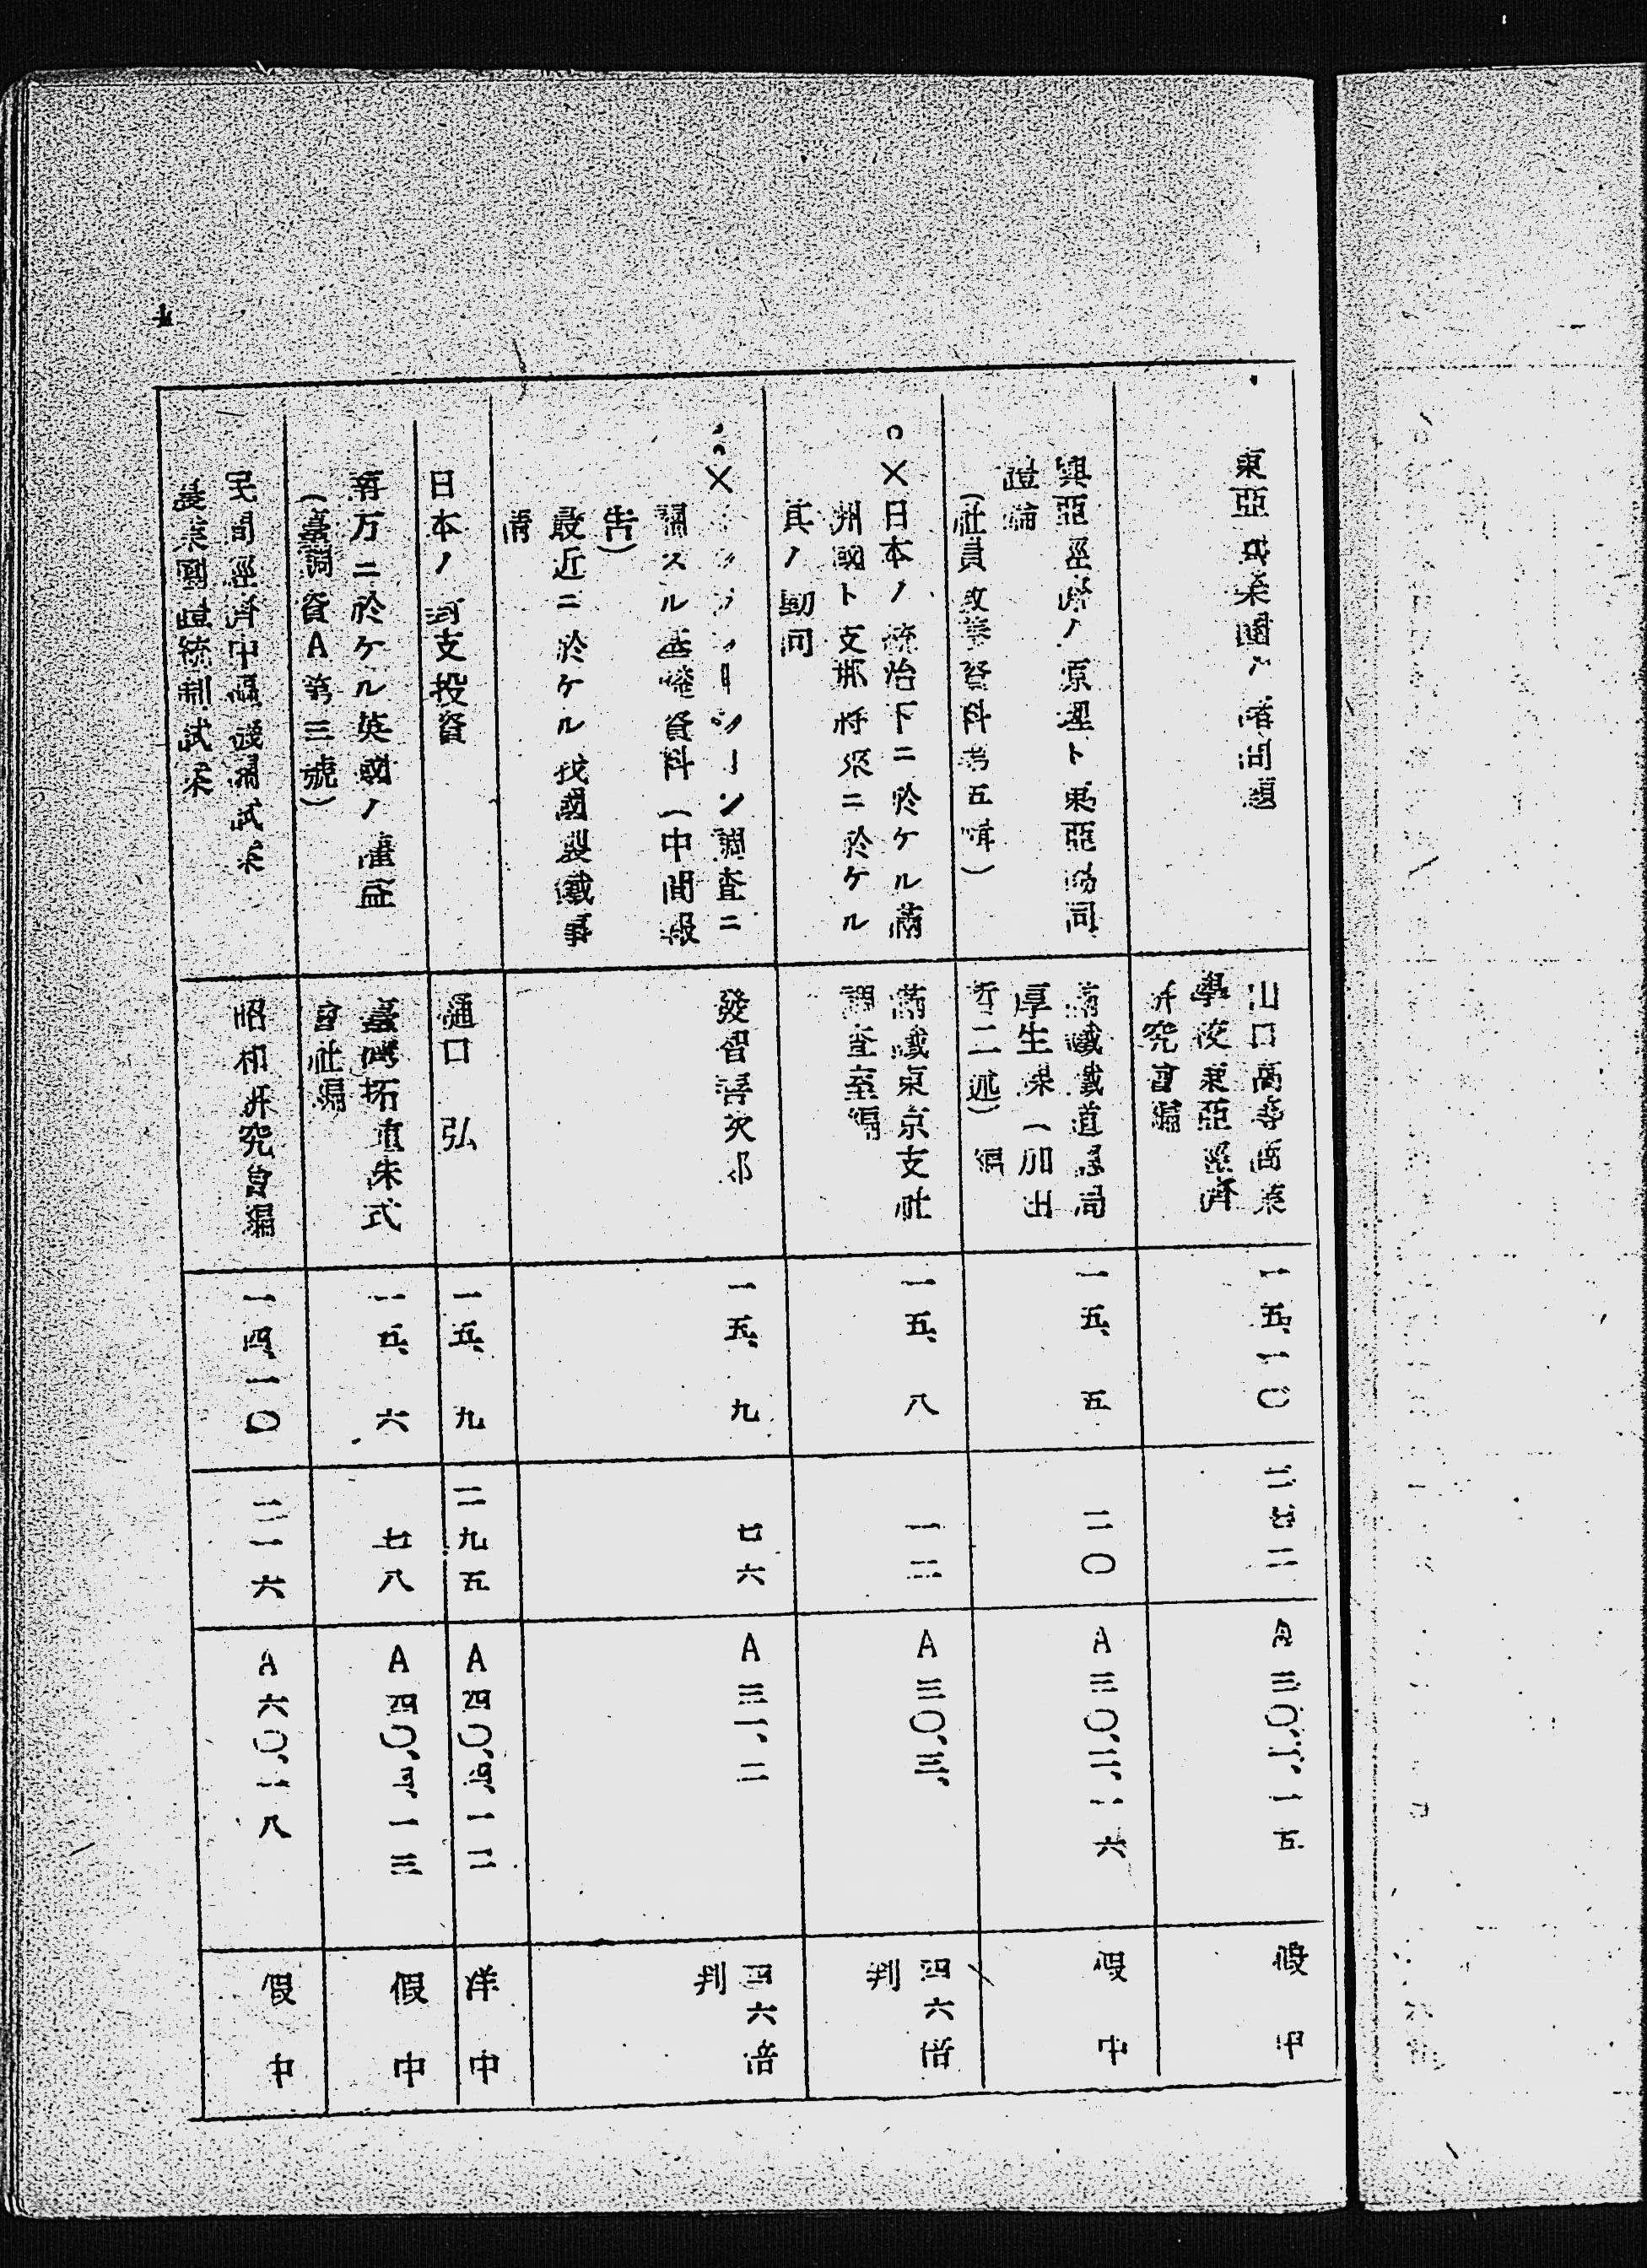 東亞共榮圈ノ諸問題
山口高等商業
學校東亞經濟
研究會編
一五、一〇
二七二
A三〇、一五
假中
興亞經濟ノ原理ト東亞協同
體論
(社員敎養資料第五輯)
滿鐵鐵道總局
厚生課(加出
哲二述)編
一五、五
二〇
A三〇、二、一六
假中
○×日本ノ統治下ニ於ケル滿
州國ト支那將來ニ於ケル
其ノ動向
滿鐵東京支社
調査室編
一五、八
一二
A三〇、三、
四六倍
判
×インフレーション調査ニ
關スル基礎資料(中間報
告)
最近ニ於ケル我國製鐵事
情
發智善次郎
一五、九
七六
A三一、二
四六倍
判
日本ノ對支投資
樋口弘
一五、九
二九五
A四〇、四、一二
洋中
南方ニ於ケル英國ノ權益
(臺調資A第三號)
臺灣拓殖株式
會社編
一五、六
七八
A四〇、一三
假中
民間經濟中樞機關試案
農業團體統制試案
昭和研究會編
一四、一〇
二一六
A六〇、一八
假中